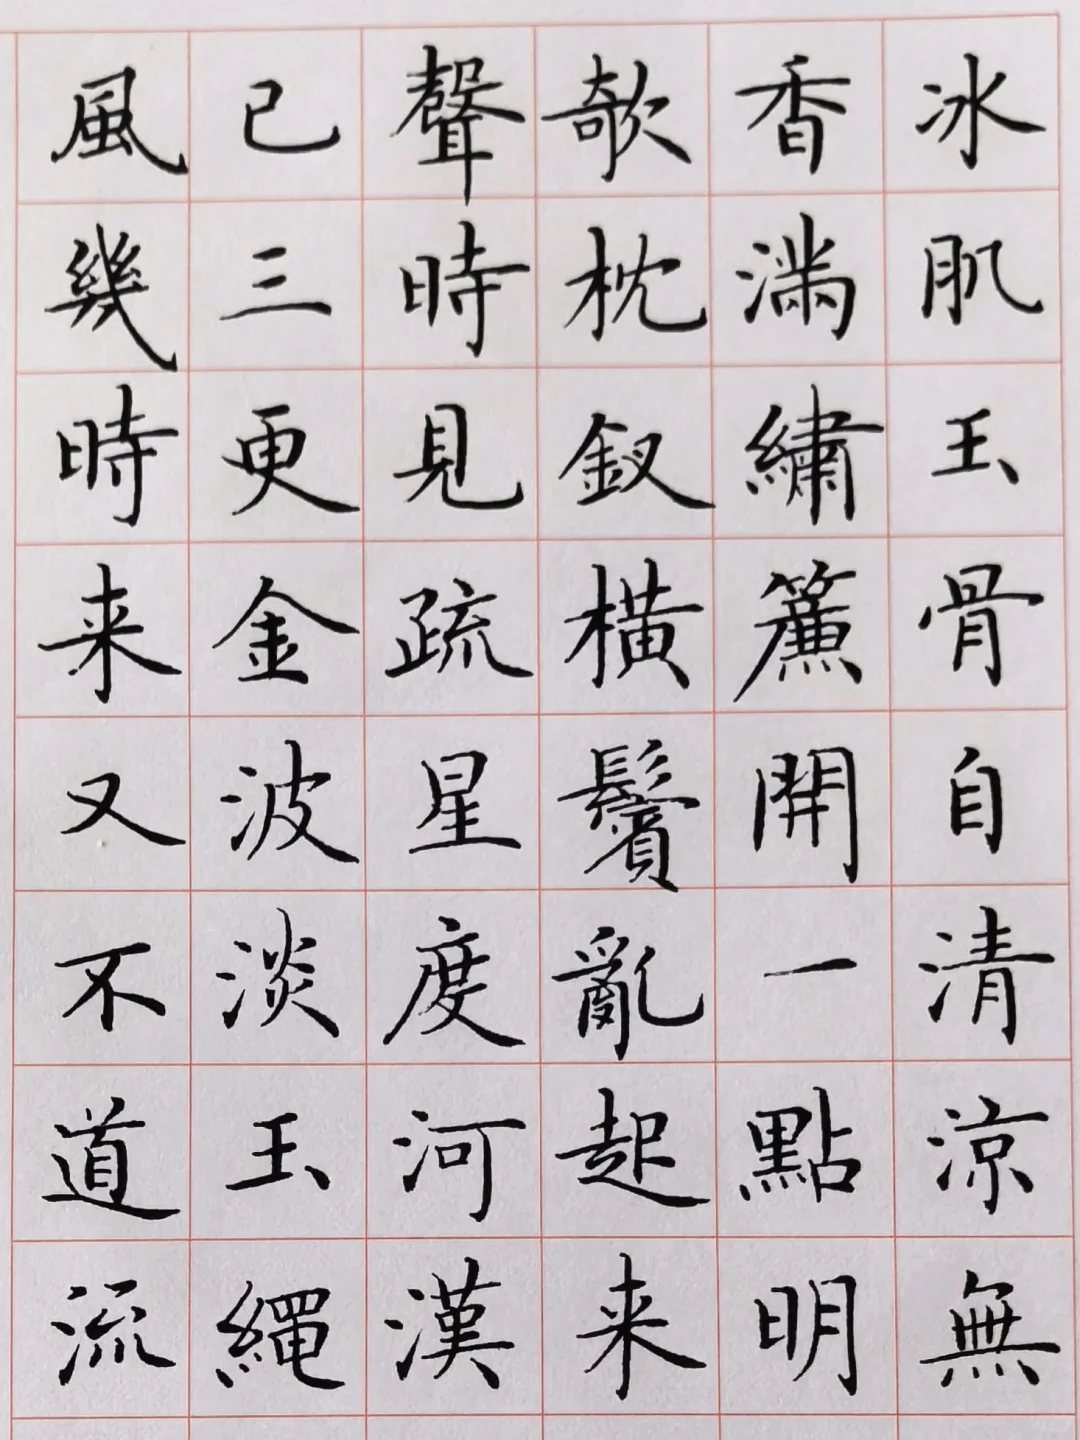 冰肌玉骨自清涼無
香滿繡簾開一點明
欹枕釵橫鬢亂起来
聲時見疏星度河漢
已三更金波淡玉繩
風幾時来又不道流